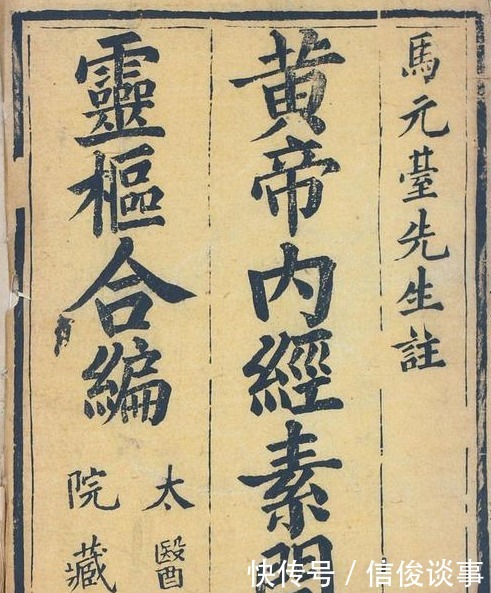 馬元臺先生註
黄帝内經素問
靈樞合編
太醫
院藏
快传号 / 信俊谈事